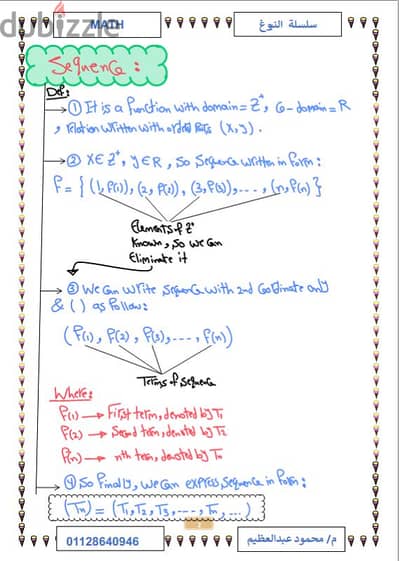 dubizzle
MATH
سلسلة النوغ
Sequence :
Def:
① It is a function with domain = Z⁺, Co-domain = R
, relation written with ordered Pairs (X, y) .
② X∈ Z⁺, y∈R, So Sequence written in Form :
f = { (1, f(1)), (2, f(2)), (3, f(3)), . . . , (n, f(n)) }
Elements of Z⁺
Known, So we Can
Eliminate it
③ We Can write Sequence with 2nd Coordinate only
& ( ) as follow:
(f(1), f(2), f(3), . . . , f(n))
Terms of Sequence
Where:
f(1) → First term, denoted by T₁
f(2) → Second term, denoted by T₂
f(n) → nth term, denoted by Tn
④ So Finally, we Can express Sequence in Form :
(Tn) = (T₁, T₂, T₃, . . . , Tn, ...)
01128640946
م/ محمود عبدالعظيم